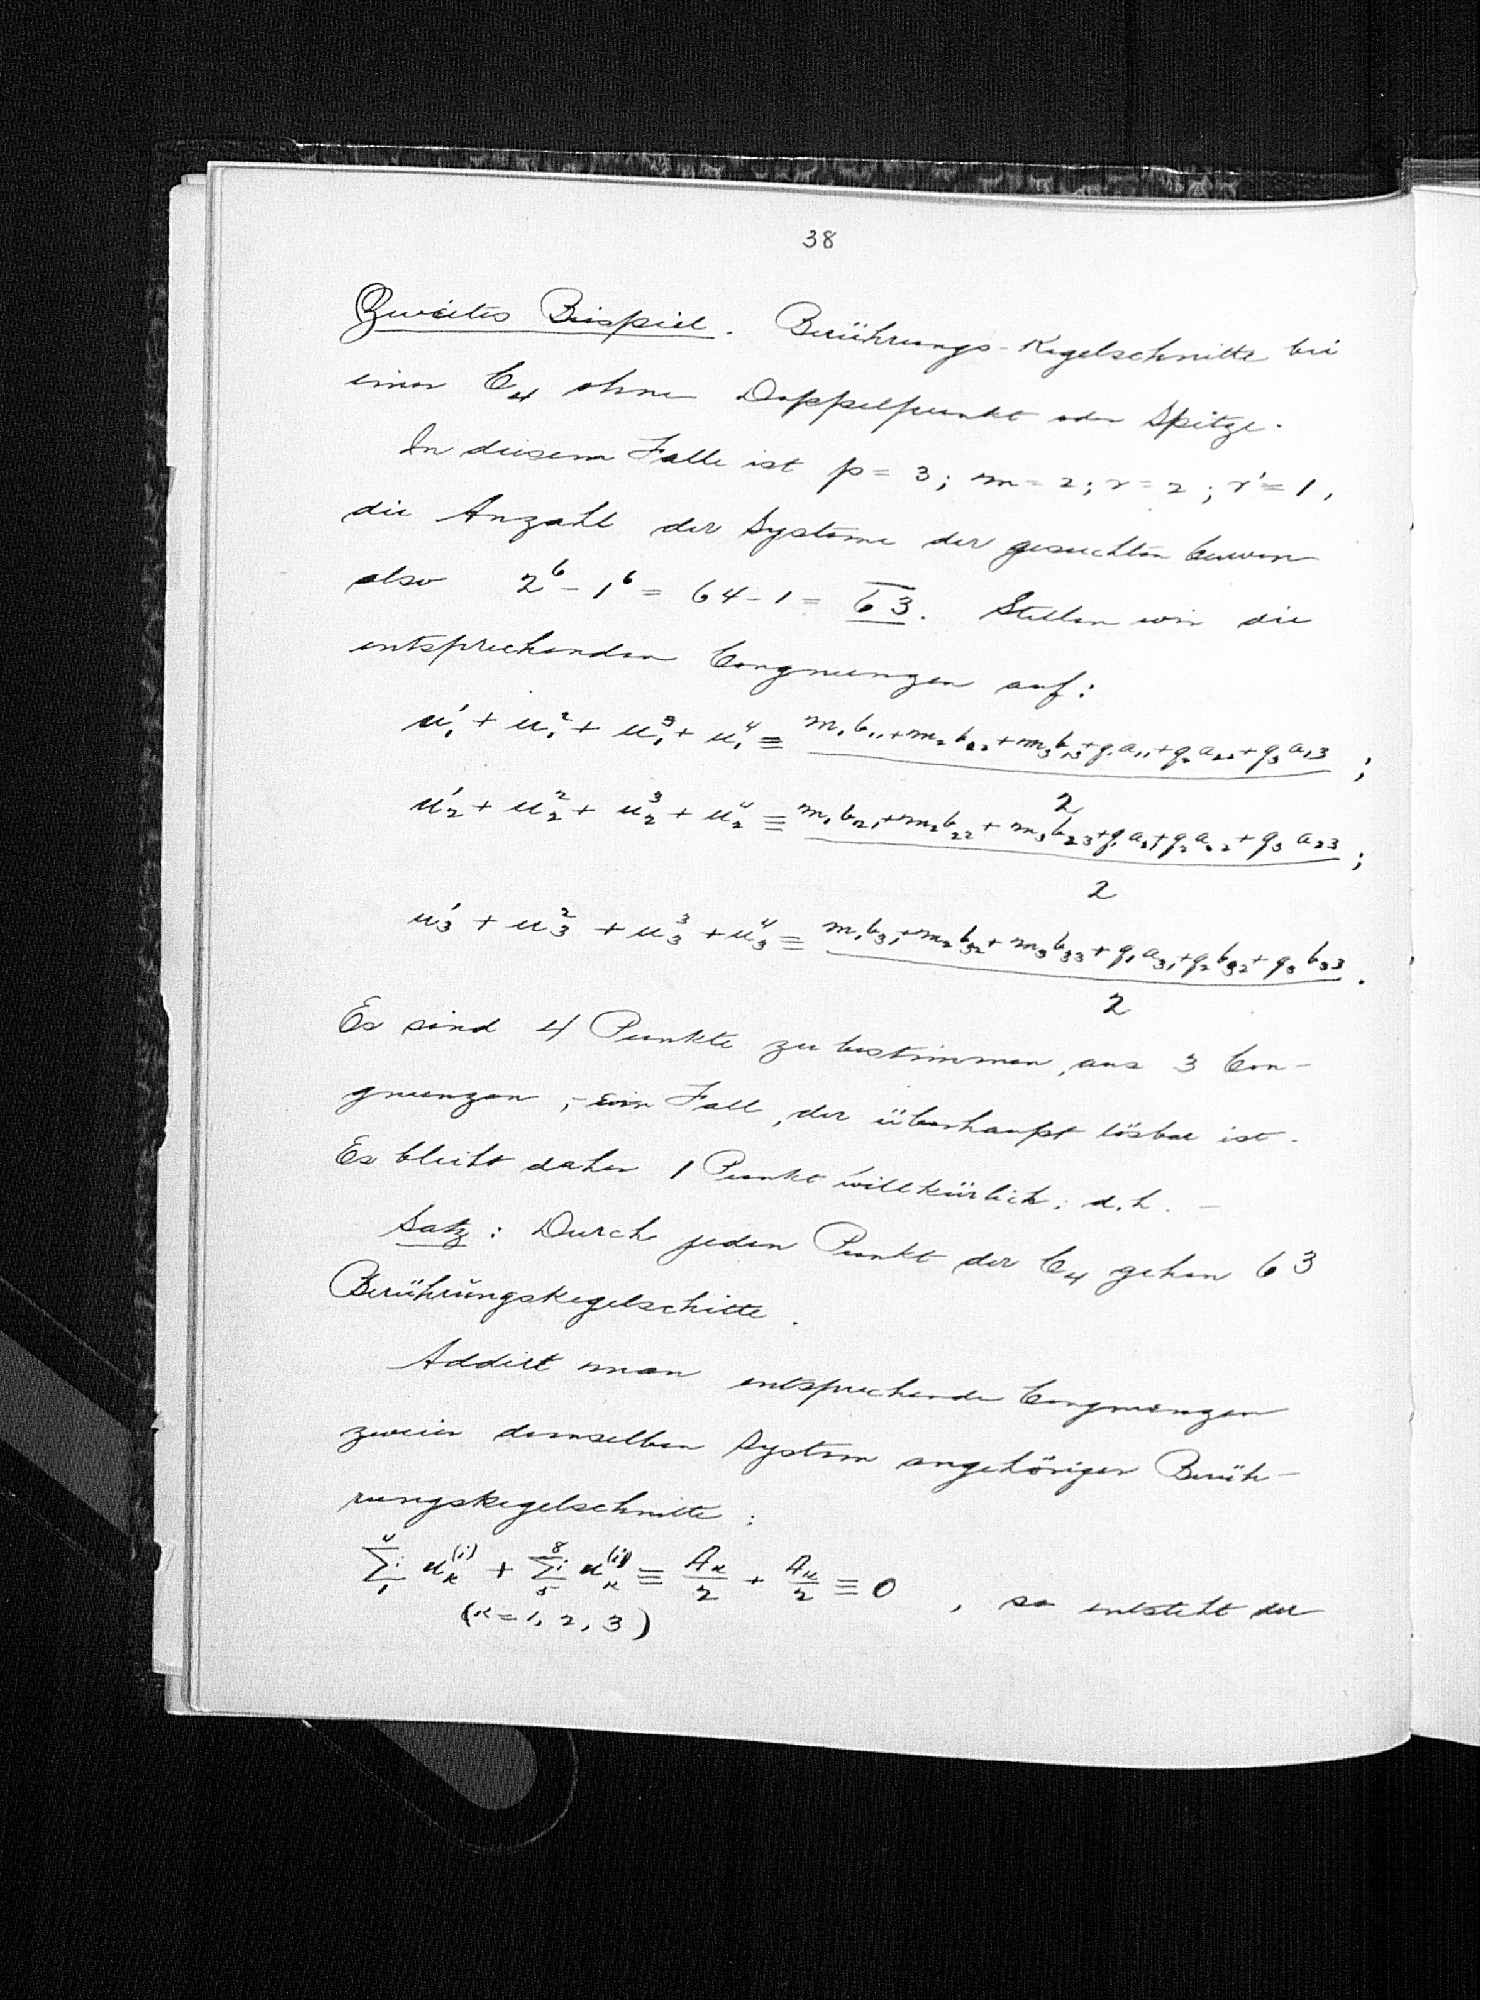 38
Zweites Beispiel. Berührungs-Kegelschnitte bei
einer C₄ ohne Doppelpunkt oder Spitze.
In diesem Falle ist p = 3; m = 2; r = 2; r' = 1,
die Anzahl der Systeme der gesuchten Curven
also 2⁶ - 1⁶ = 64 - 1 = 63. Stellen wir die
entsprechenden Congruenzen auf:
u₁' + u₁² + u₁³ + u₁⁴ ≡ (m₁b₁₁ + m₂b₂₂ + m₃b₁₃ + q₁a₁₁ + q₂a₂₂ + q₃a₁₃)/2 ;
u₂' + u₂² + u₂³ + u₂⁴ ≡ (m₁b₂₁ + m₂b₂₂ + m₃b₂₃ + q₁a₂₁ + q₂a₂₂ + q₃a₂₃)/2 ;
u₃' + u₃² + u₃³ + u₃⁴ ≡ (m₁b₃₁ + m₂b₃₂ + m₃b₃₃ + q₁a₃₁ + q₂b₃₂ + q₃b₃₃)/2 .
Es sind 4 Punkte zu bestimmen, aus 3 Con-
gruenzen, - ein Fall, der überhaupt lösbar ist.
Es bleibt daher 1 Punkt willkürlich; d.h. -
Satz: Durch jeden Punkt der C₄ gehen 63
Berührungskegelschitte.
Addirt man entsprechende Congruenzen
zweier demselben System angehöriger Berüh-
rungskegelschnitte:
∑₁⁴ᵢ uκ⁽ⁱ⁾ + ∑₅⁸ᵢ uκ⁽ⁱ⁾ ≡ Aκ/2 + Aκ/2 ≡ 0 , so entsteht der
(κ = 1, 2, 3)